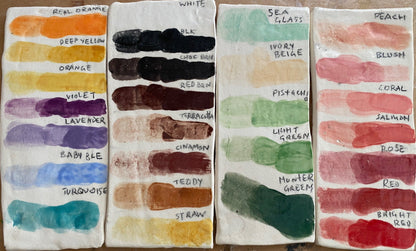 REAL ORANGE
DEEP YELLOW
ORANGE
VIOLET
LAVENDER
BABY BLE
TURQUOISE
WHITE
BLK
CHOC BRWN
RED BRN
TERRACOTA
CINAMON
TEDDY
STRAW
SEA
GLASS
IVORY
BEIGE
PISTACHIO
LIGHT
GREEN
HUNTER
GREEN
PEACH
BLUSH
CORAL
SALMON
ROSE
RED
BRIGHT
RED